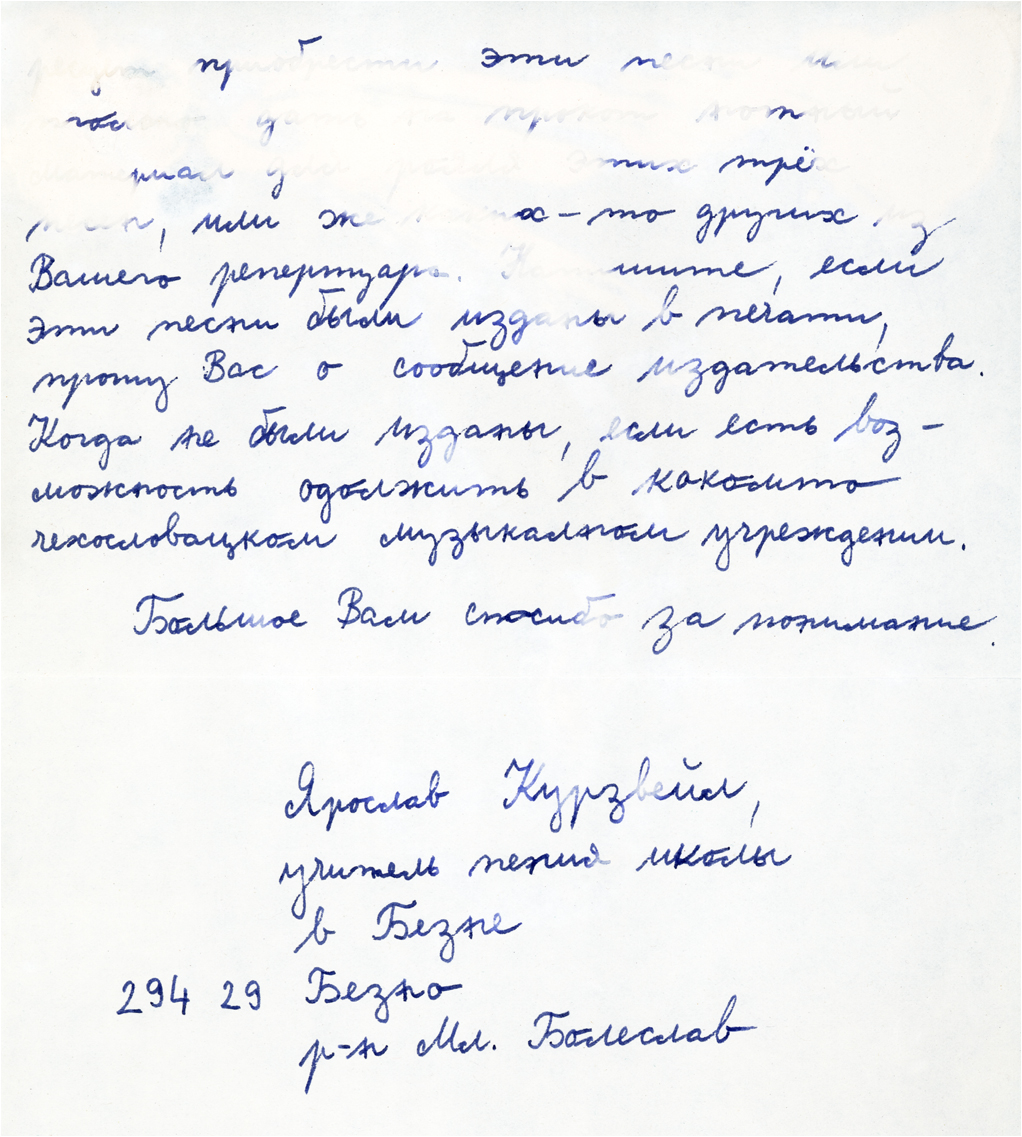 приобрести эти песни или
дать на прокат нотный
материал для рояля этих трёх
песен, или же каких-то других из
Вашего репертуара. Напишите, если
эти песни были изданы в печати,
прошу Вас о сообщение издательства.
Когда не были изданы, если есть воз-
можность одолжить в какомто
чехословацком музыкалном учреждении.
Большое Вам спасибо за понимание.
Ярослав Курзвейл,
учитель пения школы
в Безне
294 29 Безно
р-н Мл. Болеслав